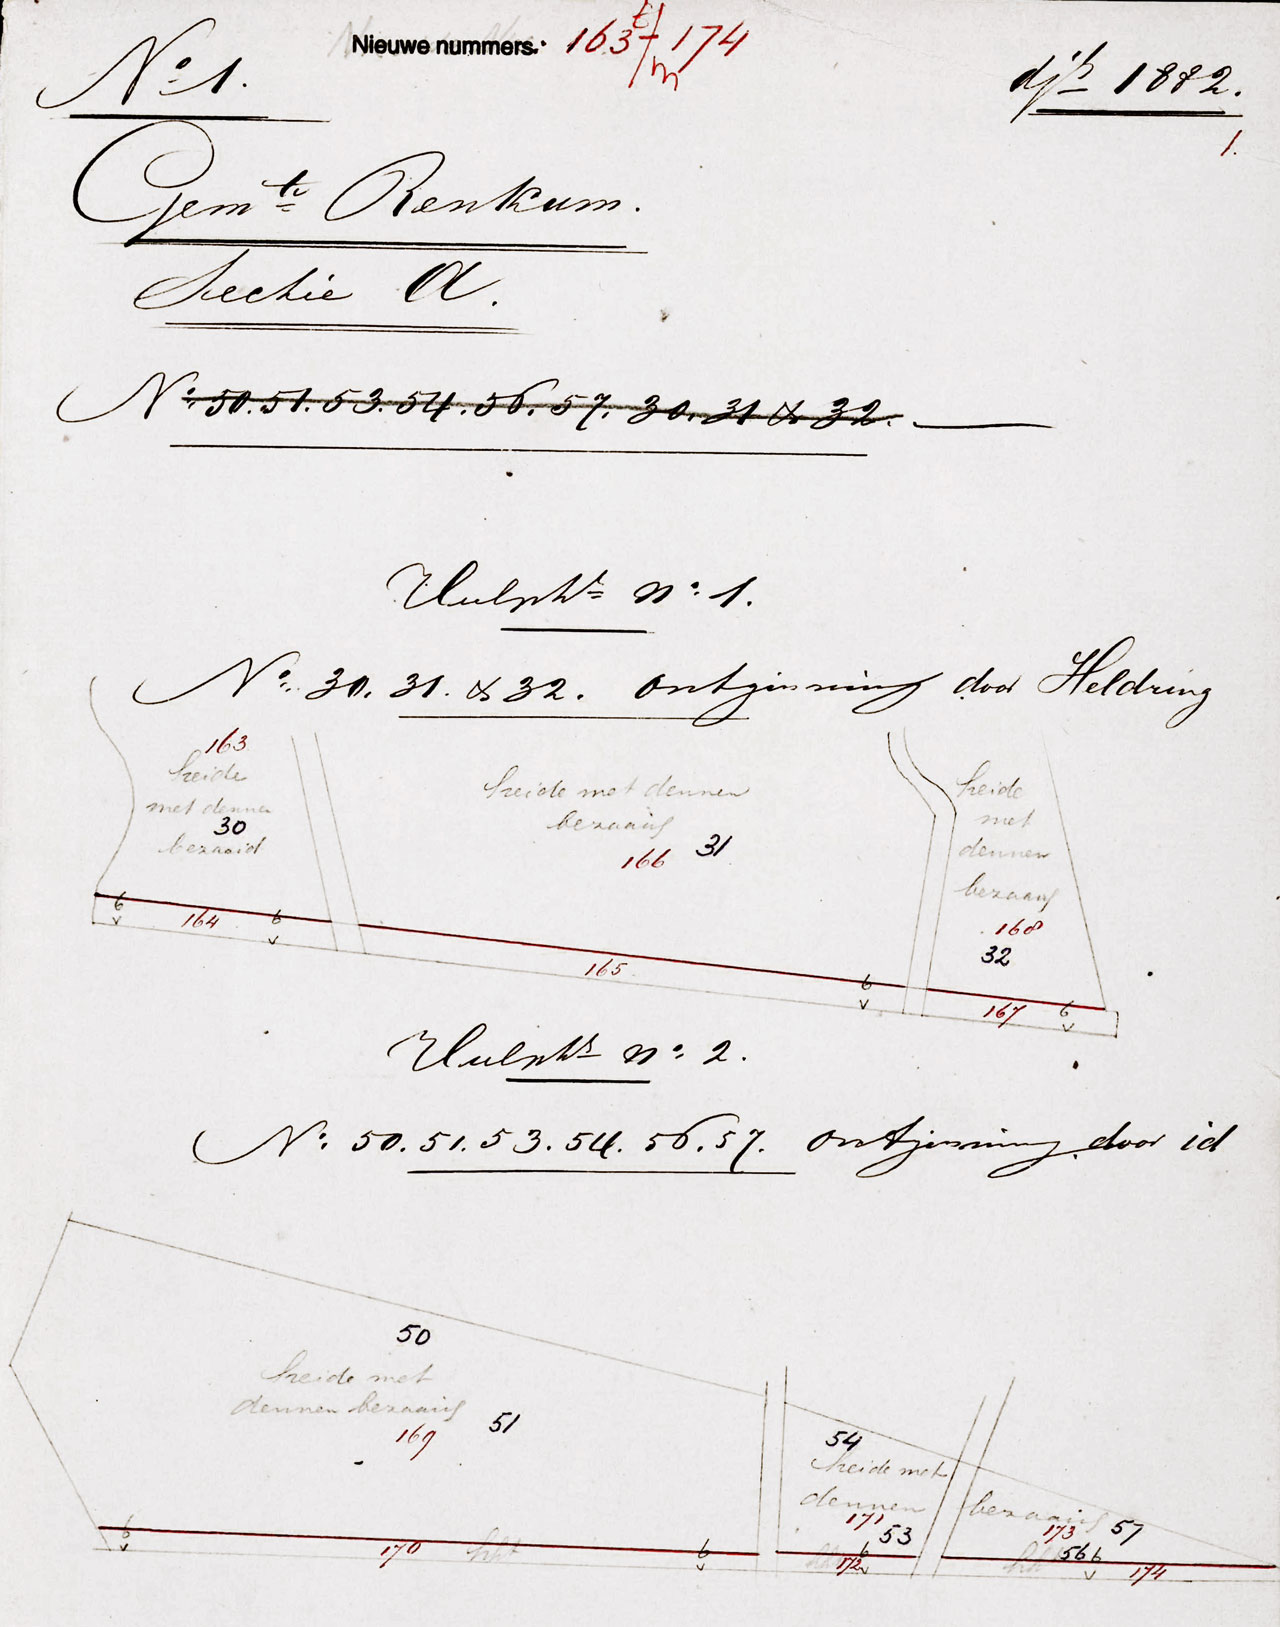 Nieuwe nummers. 163 t/m 174
No 1.
djt 1882.
1.
Gemte Renkum.
Sectie A.
No. 50. 51. 53. 54. 56. 57. 30. 31 & 32.
Hulpkt no. 1.
No. 30. 31. & 32. ontginning door Heldring
163
heide
met dennen
30
bezaaid
heide met dennen
bezaaid
166 31
heide
met
dennen
bezaaid
168
32
6 164 6
165
6
167 6
Hulpkt no. 2.
No. 50. 51. 53. 54. 56. 57. ontginning door id
50
heide met
dennen bezaaid
169 51
54
heide met
dennen bezaaid
171
53
173 57
6 170 hht 6
172 6
56 6
174